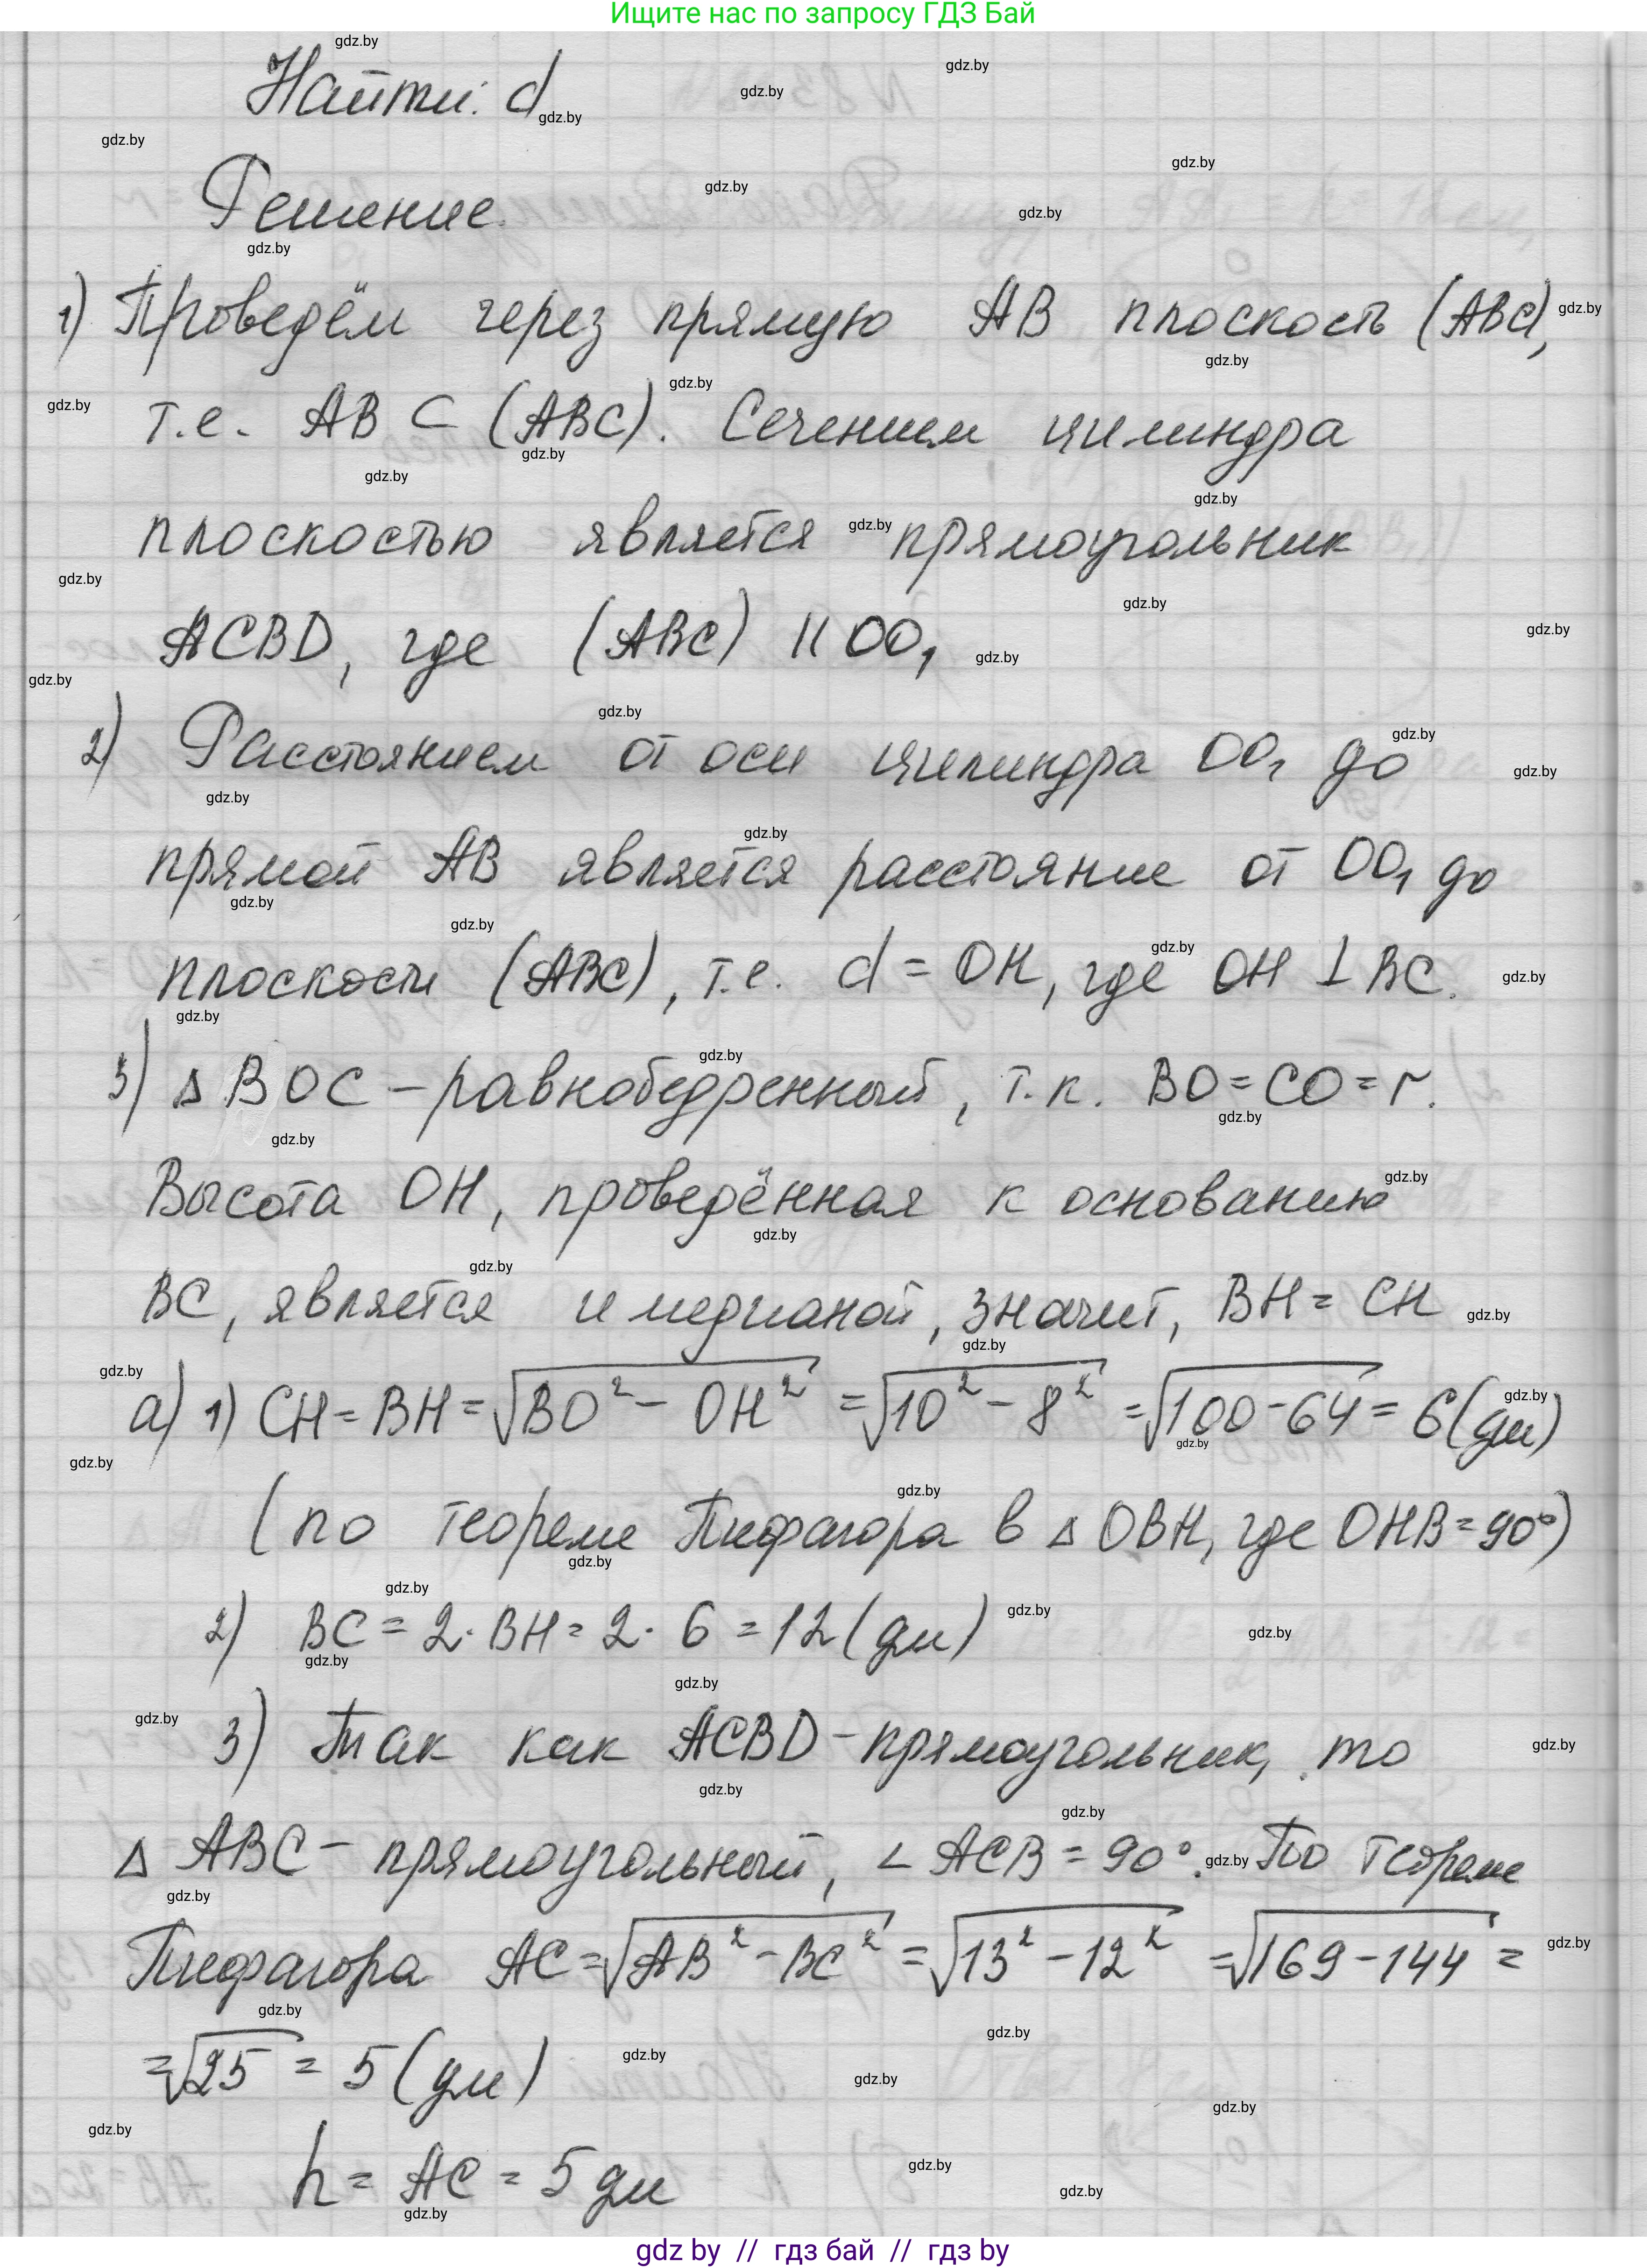 Ищите нас по запросу ГДЗ Бай
Найти: d
Решение.
1) Проведём через прямую AB плоскость (ABC),
т.е. AB ⊂ (ABC). Сечением цилиндра
плоскостью является прямоугольник
ACBD, где (ABC) || OO₁
2) Расстоянием от оси цилиндра OO₁ до
прямой AB является расстояние от OO₁ до
плоскости (ABC), т.е. d = OH, где OH ⊥ BC.
3) Δ BOC – равнобедренный, т.к. BO = CO = r.
Высота OH, проведённая к основанию
BC, является и медианой, значит, BH = CH
а) 1) CH = BH = √(BO² – OH²) = √(10² – 8²) = √(100 – 64) = 6 (дм)
(по теореме Пифагора в Δ OBH, где OHB = 90°)
2) BC = 2 · BH = 2 · 6 = 12 (дм)
3) Так как ACBD – прямоугольник, то
Δ ABC – прямоугольный, ∠ ACB = 90°. По теореме
Пифагора AC = √(AB² – BC²) = √(13² – 12²) = √(169 – 144) =
= √25 = 5 (дм)
h = AC = 5 дм
gdz by // гдз бай // гдз by